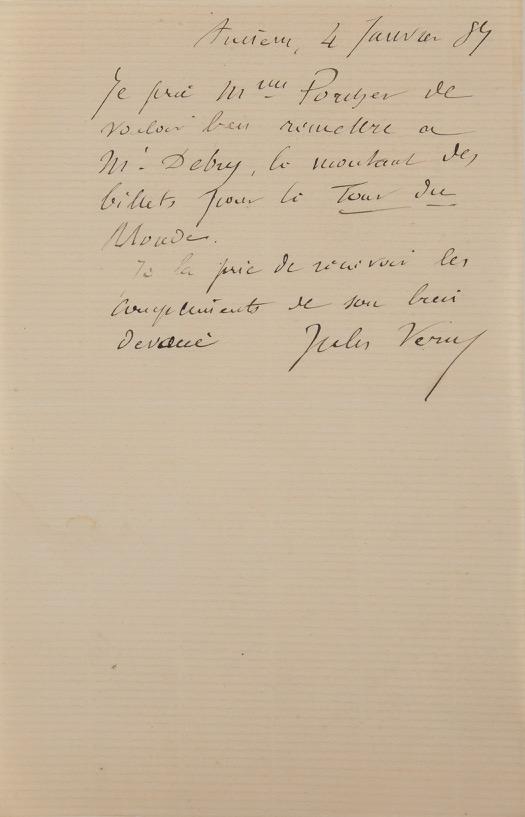 Amiens, 4 Janvier 89
Je prie Mme Porcher de
vouloir bien remettre a
Mr. Debry, le montant des
billets pour le Tour du
Monde.
Je la prie de recevoir les
compliments de son bien
devoué Jules Verne